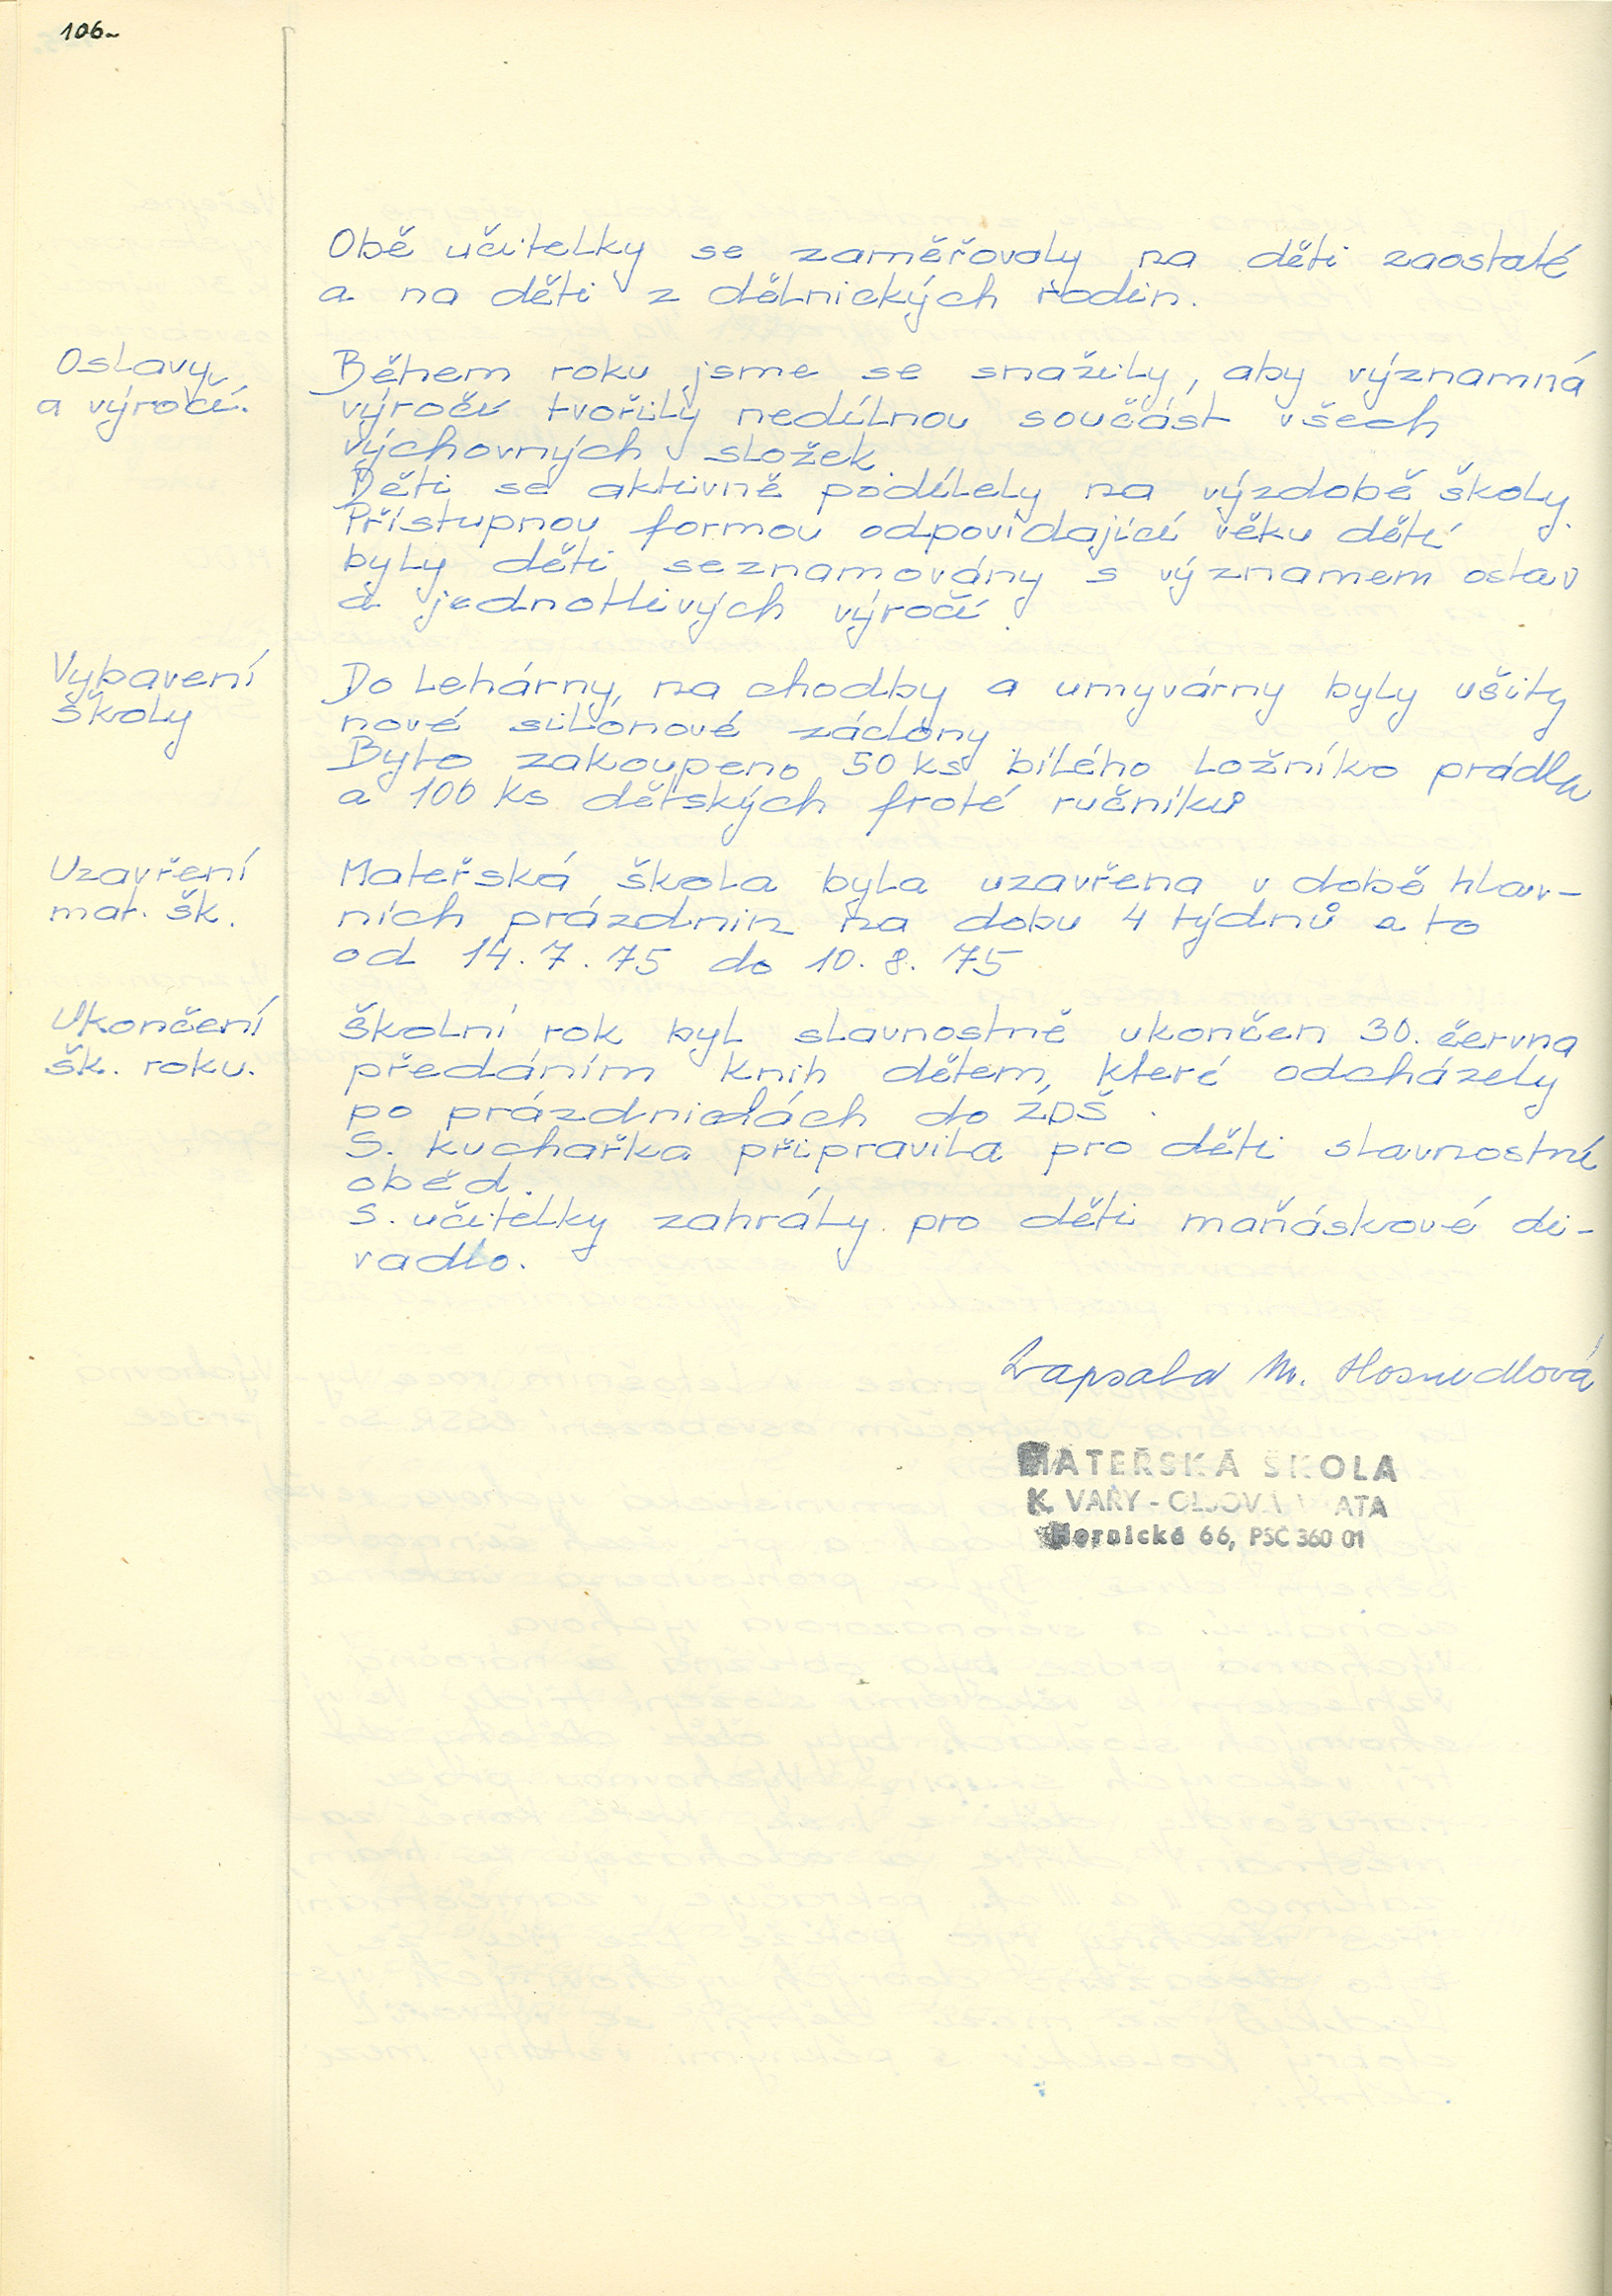 106.
Obě učitelky se zaměřovaly na děti zaostalé
a na děti z dělnických rodin.
Oslavy
a výročí.
Během roku jsme se snažily, aby významná
výročí tvořily nedílnou součást všech
výchovných složek.
Děti se aktivně podílely na výzdobě školy.
Přístupnou formou odpovídající věku dětí
byly děti seznamovány s významem oslav
a jednotlivých výročí.
Vybavení
školy
Do lehárny, na chodby a umyvárny byly ušity
nové silónové záclony
Bylo zakoupeno 50 ks bílého ložníko prádla
a 100 ks dětských froté ručníků
Uzavření
mat. šk.
Mateřská škola byla uzavřena v době hlav-
ních prázdnin na dobu 4 týdnů a to
od 14. 7. 75 do 10. 8. 75
Ukončení
šk. roku.
Školní rok byl slavnostně ukončen 30. června
předáním knih dětem, které odcházely
po prázdninách do ZDŠ.
S. kuchařka připravila pro děti slavnostní
oběd.
S. učitelky zahrály pro děti maňáskové di-
vadlo.
Zapsala M. Hosnedlová
MATEŘSKÁ ŠKOLA
K. VARY - OLŠOVÁ VRATA
Hornická 66, PSČ 360 01